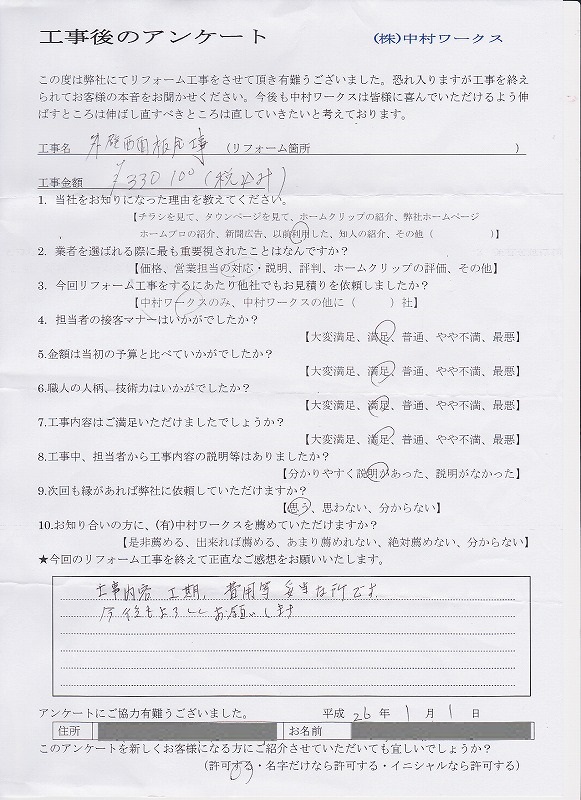 工事後のアンケート
(株)中村ワークス
この度は弊社にてリフォーム工事をさせて頂き有難うございました。恐れ入りますが工事を終え
られてお客様の本音をお聞かせください。今後も中村ワークスは皆様に喜んでいただけるよう伸
ばすところは伸ばし直すべきところは直していきたいと考えております。
工事名 外壁西面板金工事 (リフォーム箇所 )
工事金額 ¥330100(税込計)
1. 当社をお知りになった理由を教えてください。
【チラシを見て、タウンページを見て、ホームクリップの紹介、弊社ホームページ
ホームプロの紹介、新聞広告、以前利用した、知人の紹介、その他( )】
2. 業者を選ばれる際に最も重要視されたことはなんですか?
【価格、営業担当の対応・説明、評判、ホームクリップの評価、その他】
3. 今回リフォーム工事をするにあたり他社でもお見積りを依頼しましたか?
【中村ワークスのみ、中村ワークスの他に( )社】
4. 担当者の接客マナーはいかがでしたか?
【大変満足、満足、普通、やや不満、最悪】
5.金額は当初の予算と比べていかがでしたか?
【大変満足、満足、普通、やや不満、最悪】
6.職人の人柄、技術力はいかがでしたか?
【大変満足、満足、普通、やや不満、最悪】
7.工事内容はご満足いただけましたでしょうか?
【大変満足、満足、普通、やや不満、最悪】
8.工事中、担当者から工事内容の説明等はありましたか?
【分かりやすく説明があった、説明がなかった】
9.次回も縁があれば弊社に依頼していただけますか?
【思う、思わない、分からない】
10.お知り合いの方に、(有)中村ワークスを薦めていただけますか?
【是非薦める、出来れば薦める、あまり薦めれない、絶対薦めない、分からない】
★今回のリフォーム工事を終えて正直なご感想をお願いいたします。
工事内容 工期、費用等 妥当な所です
今後もよろしくお願いします
アンケートにご協力有難うございました。 平成 26 年 1 月 1 日
住所 お名前
このアンケートを新しくお客様になる方にご紹介させていただいても宜しいでしょうか?
(許可する・名字だけなら許可する・イニシャルなら許可する)